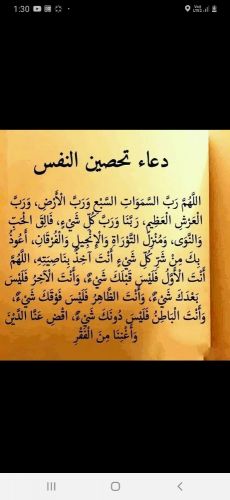 1:30
دعاء تحصين النفس
اللَّهُمَّ رَبَّ السَّمَوَاتِ السَّبْعِ وَرَبَّ الْأَرْضِ، وَرَبَّ
الْعَرْشِ الْعَظِيمِ، رَبَّنَا وَرَبَّ كُلِّ شَيْءٍ، فَالِقَ الْحَبِّ
وَالنَّوَى، وَمُنْزِلَ التَّوْرَاةِ وَالْإِنْجِيلِ وَالْفُرْقَانِ، أَعُوذُ
بِكَ مِنْ شَرِّ كُلِّ شَيْءٍ أَنْتَ آخِذٌ بِنَاصِيَتِهِ، اللَّهُمَّ
أَنْتَ الْأَوَّلُ فَلَيْسَ قَبْلَكَ شَيْءٌ، وَأَنْتَ الْآخِرُ فَلَيْسَ
بَعْدَكَ شَيْءٌ، وَأَنْتَ الظَّاهِرُ فَلَيْسَ فَوْقَكَ شَيْءٌ،
وَأَنْتَ الْبَاطِنُ فَلَيْسَ دُونَكَ شَيْءٌ، اقْضِ عَنَّا الدَّيْنَ
وَأَغْنِنَا مِنَ الْفَقْرِ